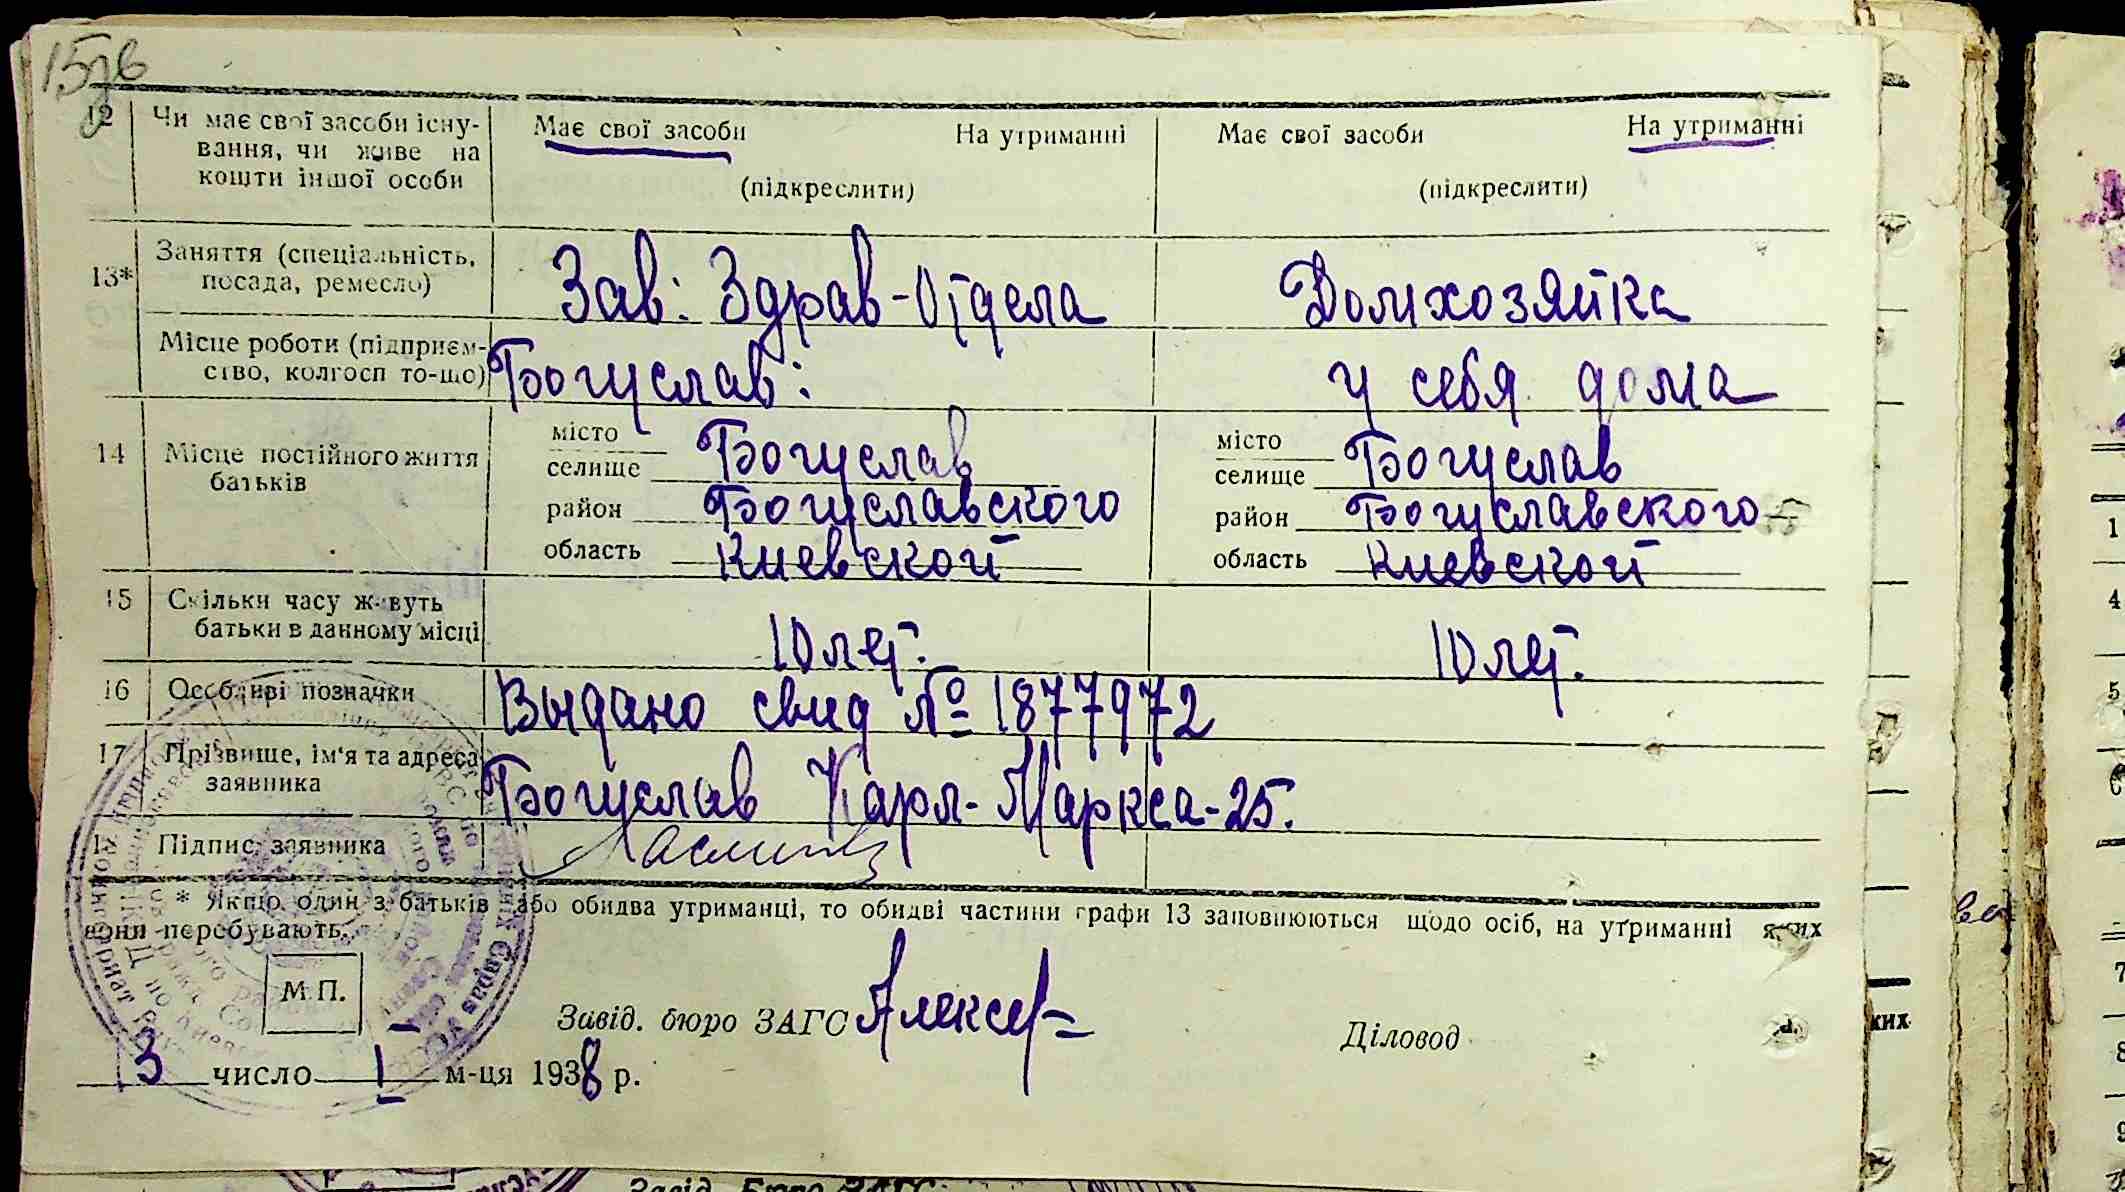 15зв
12 Чи має свої засоби існу-
вання, чи живе на
кошти іншої особи
Має свої засоби На утриманні
(підкреслити)
Має свої засоби На утриманні
(підкреслити)
13* Заняття (спеціальність,
посада, ремесло)
Зав: Здрав-Отдела
Домхозяйка
Місце роботи (підприєм-
ство, колгосп то-що)
Богуслав:
у себя дома
14 Місце постійного життя
батьків
місто
селище Богуслав
район Богуславского
область Киевской
місто
селище Богуслав
район Богуславского
область Киевской
15 Скільки часу живуть
батьки в данному місці
10 лет.
10 лет.
16 Особливі позначки
Выдано свид № 1877972
17 Прізвище, ім'я та адреса
заявника
Богуслав Карл-Маркса-25.
Підпис заявника
* Якщо один з батьків або обидва утриманці, то обидві частини графи 13 заповнюються щодо осіб, на утриманні яких
вони перебувають.
М.П.
Завід. бюро ЗАГС
Діловод
3 число 1 м-ця 1938 р.
Завід. Бюро ЗАГС